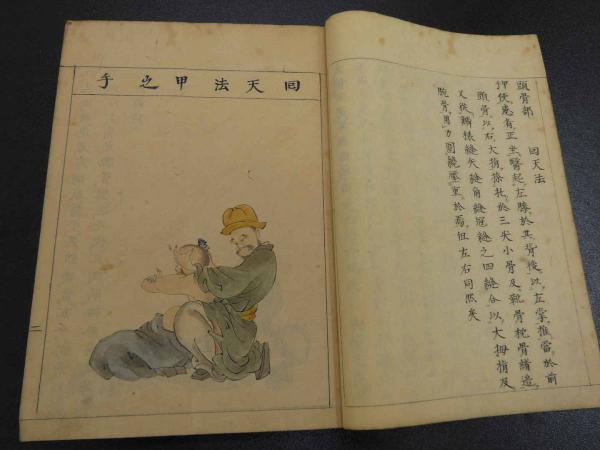 頭骨部 回天法
押使患者正坐醫起左膝於其背後以左掌推當於前
頭骨以右大指徐托於三尖小骨及靴骨枕骨諸邊
又從鱗様縫矢縫角縫冠縫之四縫合以大拇指及
腕骨力圍繞壓重於焉但左右同然矣
回天法甲之手
二